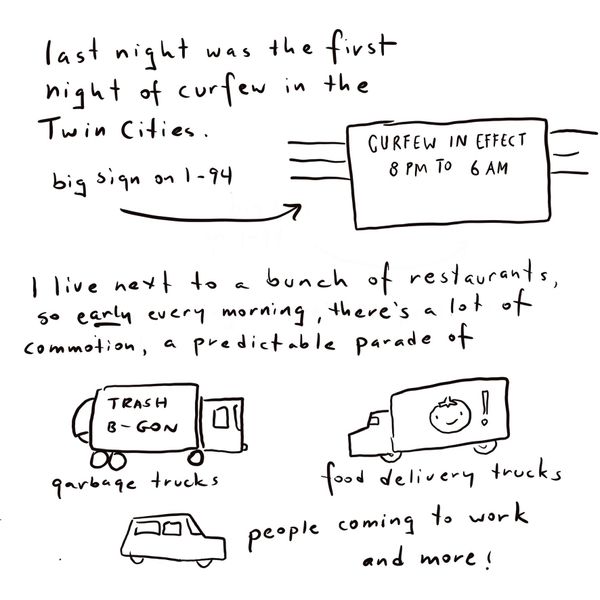 last night was the first
night of curfew in the
Twin Cities.
big sign on I-94
CURFEW IN EFFECT
8 PM TO 6 AM
I live next to a bunch of restaurants,
so early every morning, there's a lot of
commotion, a predictable parade of
TRASH
B-GON
!
garbage trucks
food delivery trucks
people coming to work
and more!